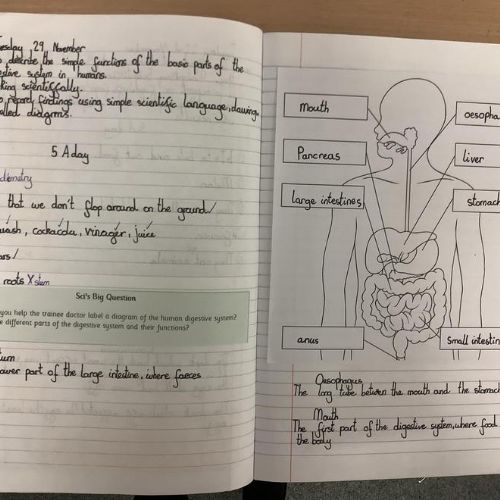 Tuesday 29 November
describe the simple functions of the basic parts of the
digestive system in humans.
working scientifically.
report findings using simple scientific language, drawings,
labelled diagrams.
5 A day
that we don't flop around on the ground
, cocacola, vinager, juice
roots X stem
Sci's Big Question
you help the trainee doctor label a diagram of the human digestive system?
different parts of the digestive system and their functions?
lower part of the large intestine, where faeces
mouth
Pancreas
large intestines
anus
oesopha
liver
stomach
small intestin
Oesophagus
The long tube between the mouth and the stomach
Mouth
The first part of the digestive system, where food
the body